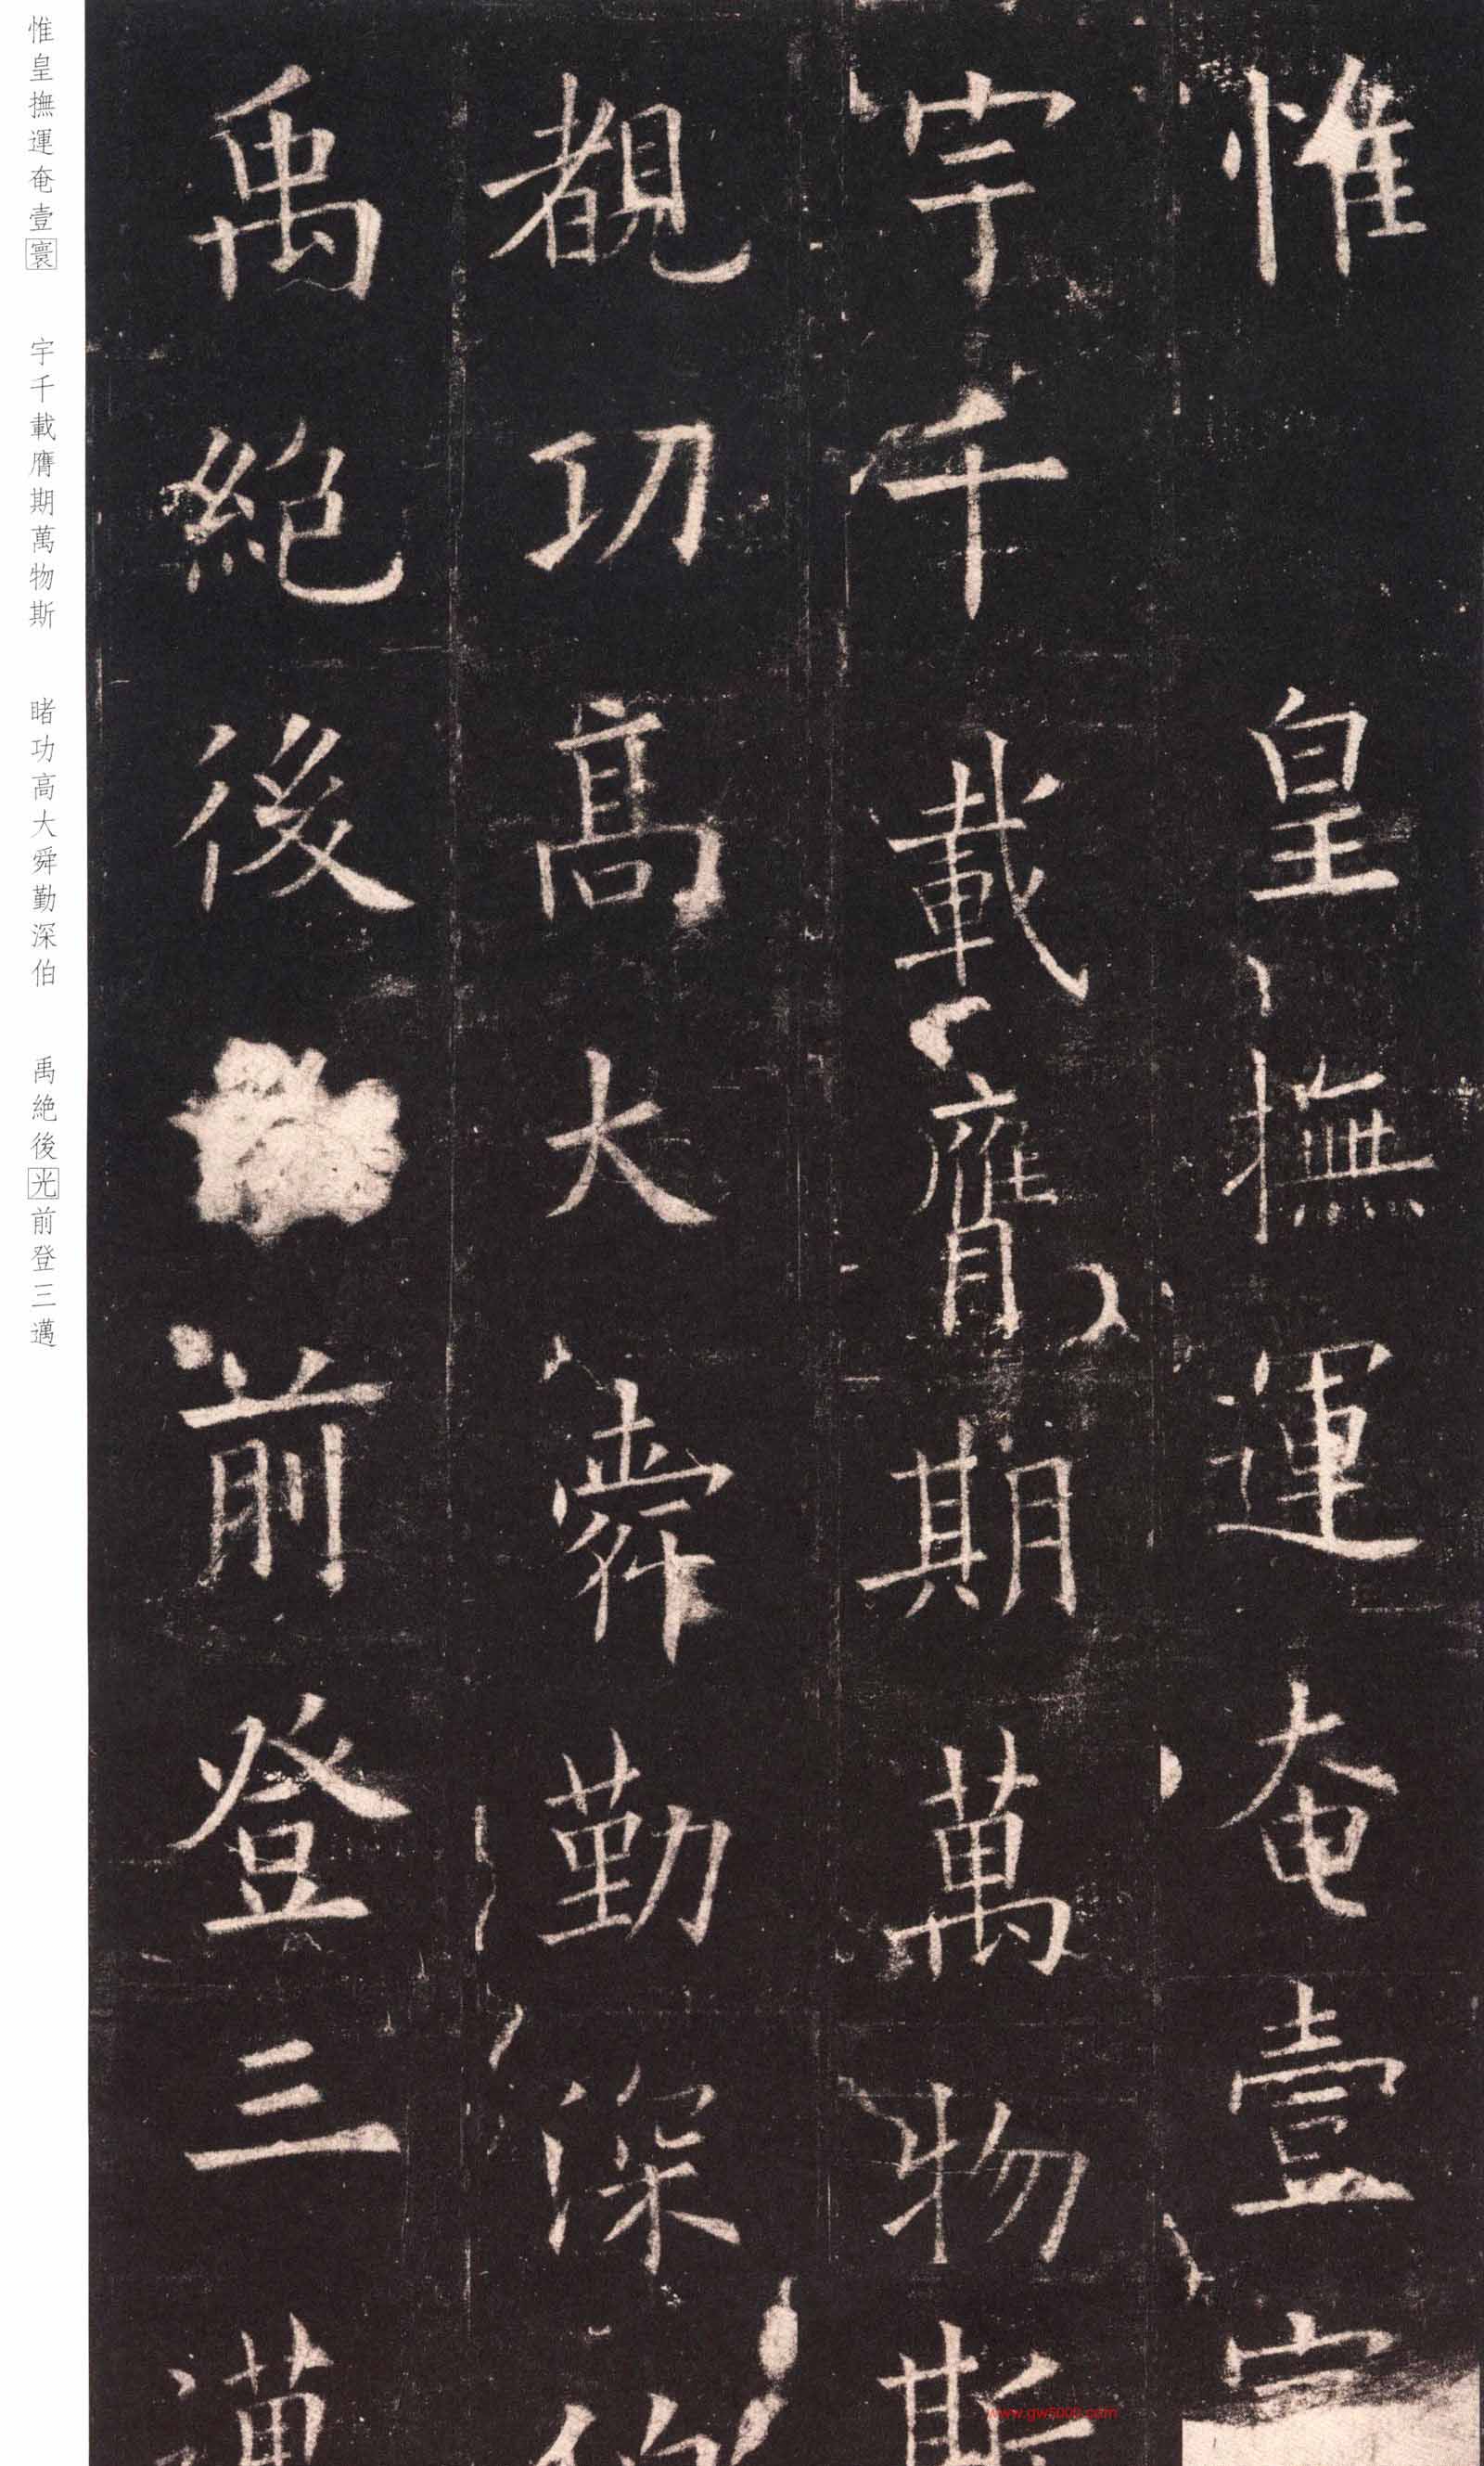 惟皇撫運奄壹寰
宇千載膺期萬物斯
覩功高大舜勤深伯
禹絶後前登三邁
惟皇撫運奄壹寰　宇千載膺期萬物斯　睹功高大舜勤深伯　禹絶後光前登三邁
www.gw5000.com